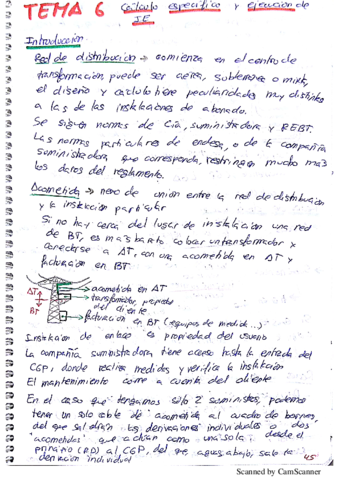 TEMA 6 Cálculo específico y ejecución de
I.E.
Introducción
Red de distribución → comienza en el centro de
transformación puede ser aérea, subterránea o mixta,
el diseño y cálculo tiene peculiaridades muy distintas
a las de las instalaciones de abonado.
Se siguen normas de Cía, suministradora y REBT.
Las normas particulares de endesa, o de la compañía
suministradora, que corresponda, restringen mucho más
los datos del reglamento.
Acometida → nexo de unión entre la red de distribución
y la instalación particular
Si no hay cerca del lugar de instalación una red
de BT, es más barato colocar un transformador y
conectarse a AT, con una acometida en AT y
facturación en BT
AT
BT
acometida en AT
transformador, propiedad
del cliente
facturación en BT (equipos de medida...)
Instalación de enlace es propiedad del usuario
La compañía suministradora tiene acceso hasta la entrada del
CGP, donde realiza medidas y verifica la instalación
El mantenimiento corre a cuenta del cliente
En el caso que tengamos solo 2 suministros, podemos
tener un solo cable de acometida al cuadro de bornes,
del que saldrán las derivaciones individuales o dos
"acometidas" que actúan como una sola, desde el
principio (RD) al CGP, del que aguas abajo, sale la
derivación individual
45
Scanned by CamScanner